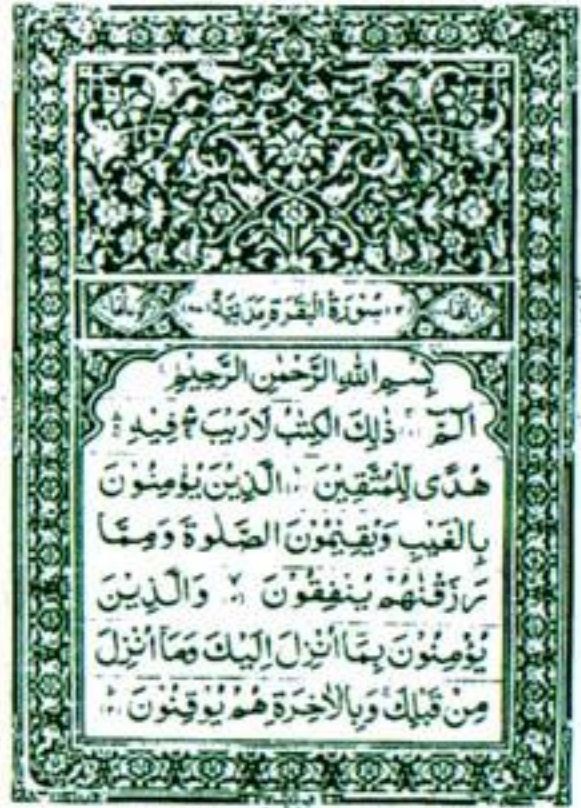 سُوْرَةُ الْبَقَرَةِ مَدَنِيَّةٌ
بِسْمِ اللهِ الرَّحْمٰنِ الرَّحِيْمِ
الٓمّٓ ذٰلِكَ الْكِتٰبُ لَا رَيْبَ ۛ فِيْهِ ۛ
هُدًى لِّلْمُتَّقِيْنَ الَّذِيْنَ يُؤْمِنُوْنَ
بِالْغَيْبِ وَيُقِيْمُوْنَ الصَّلٰوةَ وَمِمَّا
رَزَقْنٰهُمْ يُنْفِقُوْنَ وَالَّذِيْنَ
يُؤْمِنُوْنَ بِمَآ اُنْزِلَ اِلَيْكَ وَمَآ اُنْزِلَ
مِنْ قَبْلِكَ وَبِالْاٰخِرَةِ هُمْ يُوْقِنُوْنَ